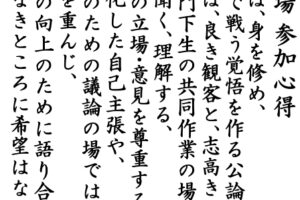 場 参加心得
は、身を修め、
で戦う覚悟を作る公論
は、良き観客と、志高き
門下生の共同作業の場
聞く、理解する、
の立場・意見を尊重する
化した自己主張や、
のための議論の場では
を重んじ、
の向上のために語り合
なきところに希望はな